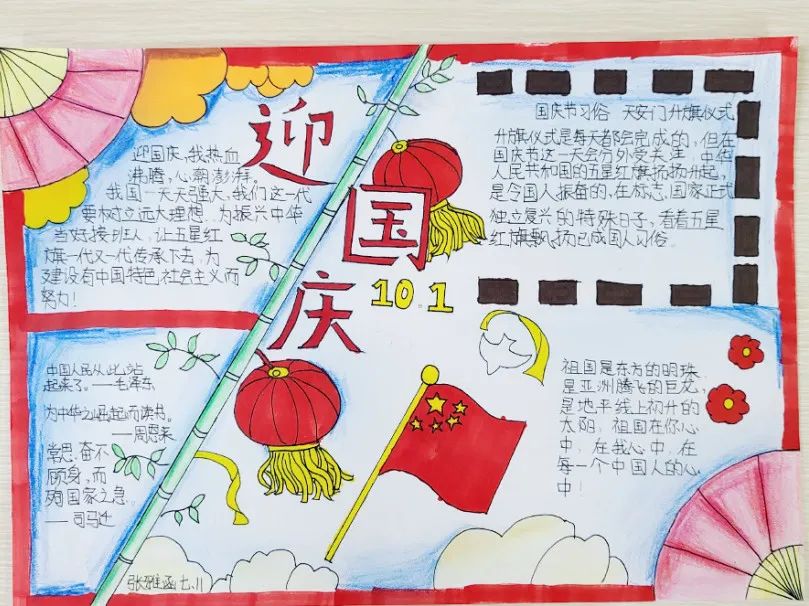 迎国庆
10.1
迎国庆,我热血
沸腾,心潮澎湃。
我国一天天强大,我们这一代
要树立远大理想,为振兴中华
当好接班人,让五星红
旗一代又一代传承下去,为
建设有中国特色社会主义而
努力!
国庆节习俗 天安门升旗仪式
升旗仪式是每天都会完成的,但在
国庆节这一天会分外受关注,中华
人民共和国的五星红旗扬扬升起,
是令国人振奋的,在标志国家正式
独立复兴的特殊日子,看着五星
红旗飘扬已成国人习俗。
中国人民从此站
起来了。——毛泽东
为中华之崛起而读书。
——周恩来
常思奋不
顾身,而
殉国家之急。
——司马迁
祖国是东方的明珠
是亚洲腾飞的巨龙,
是地平线上初升的
太阳,祖国在你心
中,在我心中,在
每一个中国人的心
中!
张雅函七.11